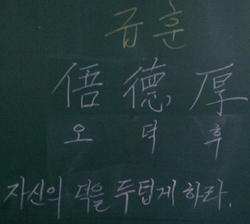 급훈
悟德厚
오덕후
자신의 덕을 두텁게 하라.